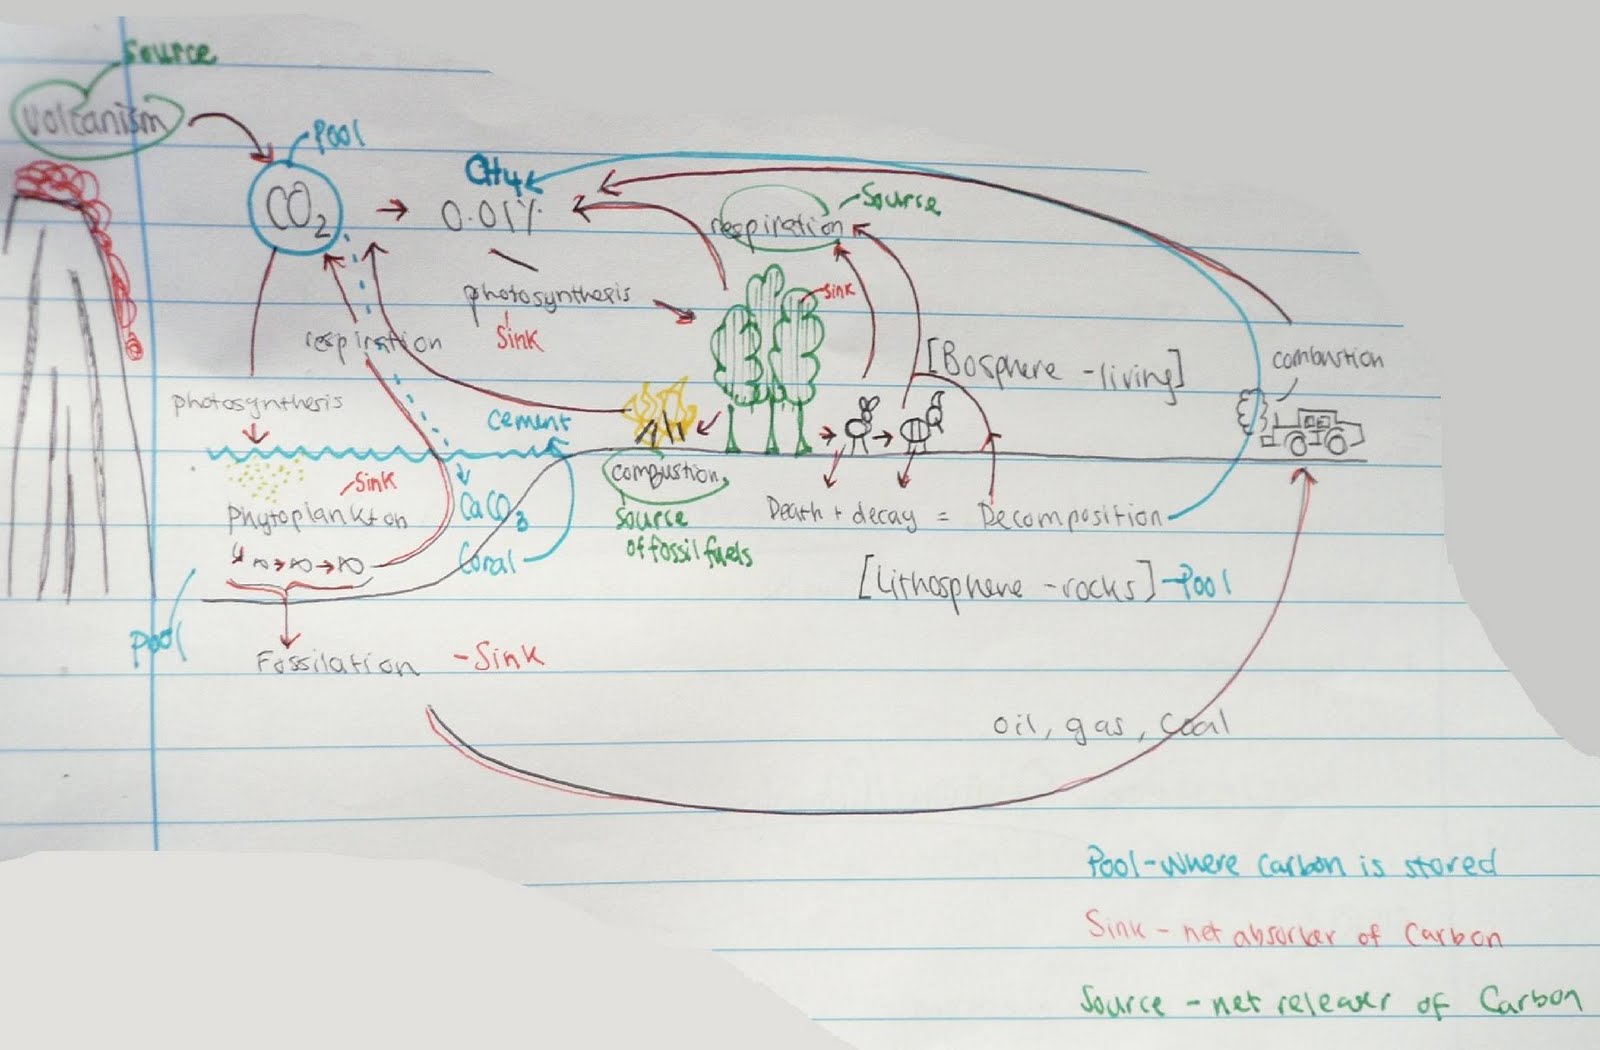 Source
Volcanism
Pool
CH4
CO2
0.01%
respiration
Source
photosynthesis
Sink
sink
respiration
[Bosphere - living]
combustion
photosynthesis
cement
Sink
combustion
Phytoplankton
CaCO3
Source
of fossil fuels
Death + decay = Decomposition
Coral
[Lithosphere - rocks] - Pool
Pool
Fossilation - Sink
oil, gas, coal
Pool - where carbon is stored
Sink - net absorber of Carbon
Source - net releaser of Carbon